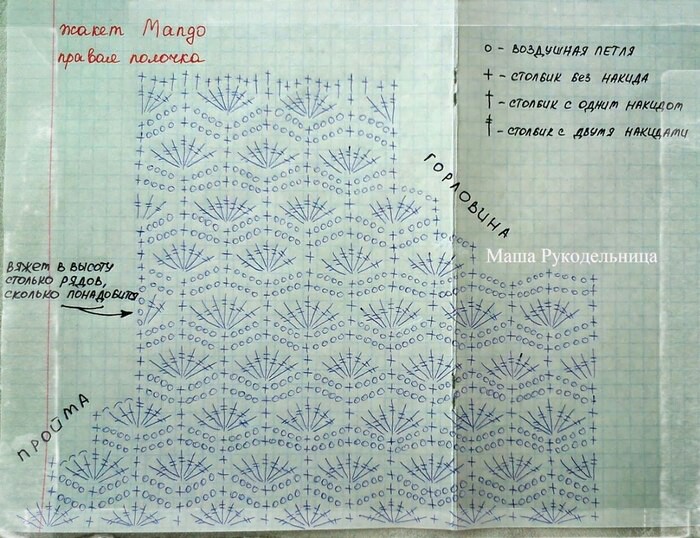 жакет Манго
правая полочка
o - ВОЗДУШНАЯ ПЕТЛЯ
+ - СТОЛБИК БЕЗ НАКИДА
† - СТОЛБИК С ОДНИМ НАКИДОМ
‡ - СТОЛБИК С ДВУМЯ НАКИДАМИ
ГОРЛОВИНА
Маша Рукодельница
ВЯЖЕМ В ВЫСОТУ
СТОЛЬКО РЯДОВ,
СКОЛЬКО ПОНАДОБИТСЯ
ПРОЙМА